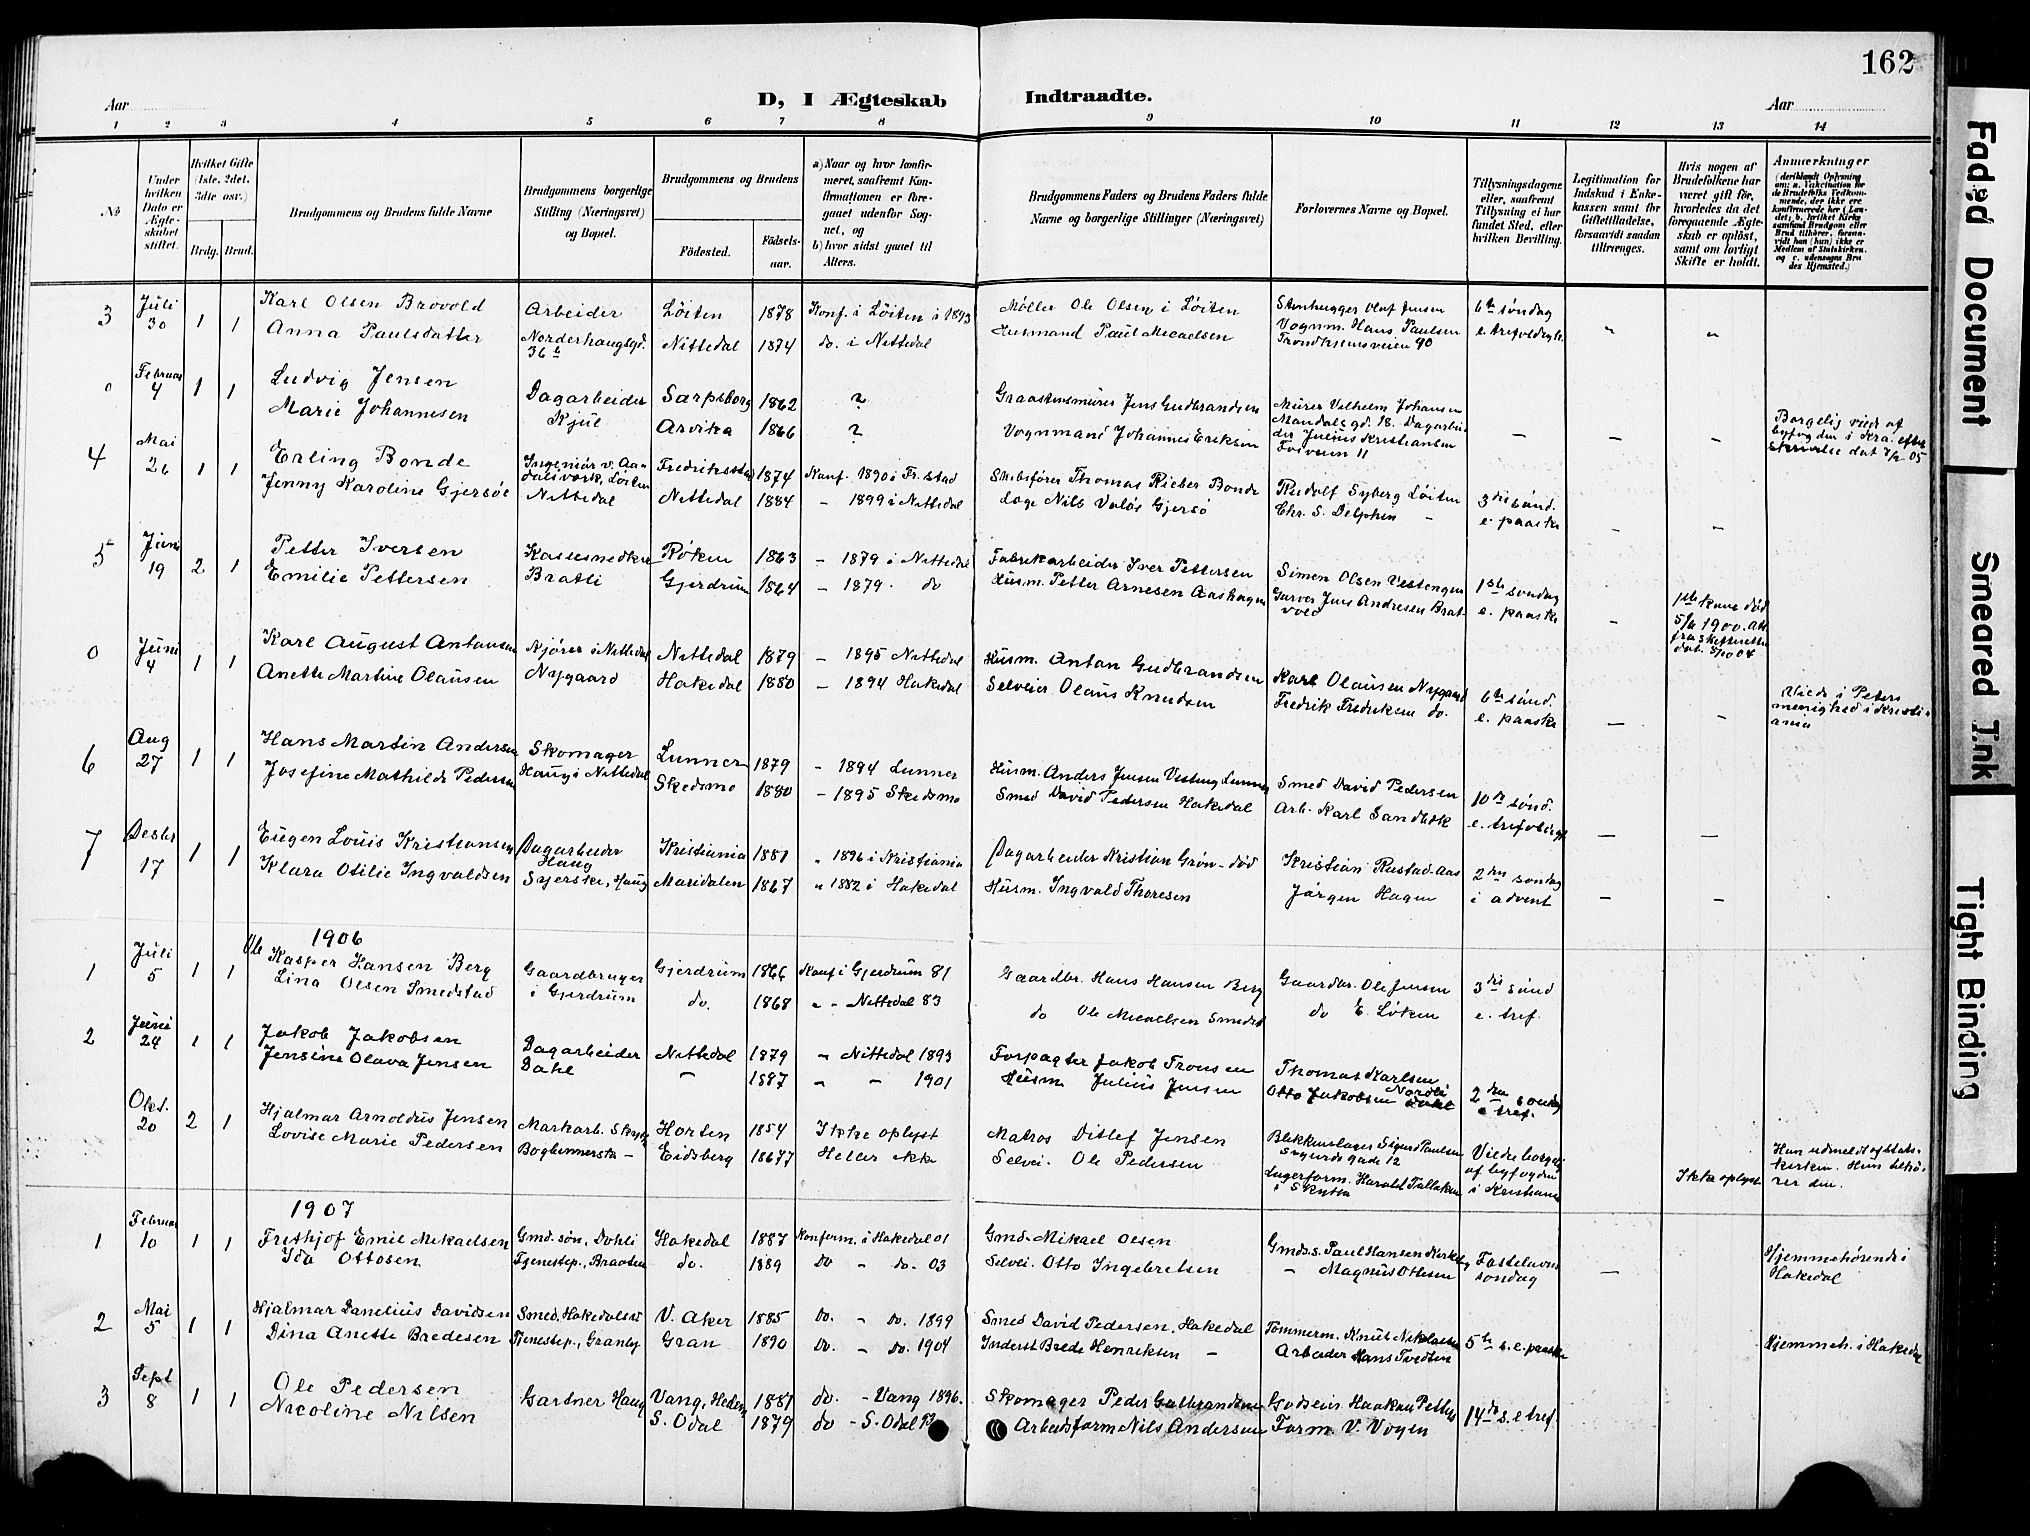 162
Aar
D, I Ægteskab
Indtraadte.
Aar
1 2 3 4 5 6 7 8 9 10 11 12 13 14
No
Under hvilken Dato er Ægteskabet stiftet.
Hvilket Gifte (1ste, 2det, 3die osv.)
Brdg. Brud.
Brudgommens og Brudens fulde Navne
Brudgommens borgerlige Stilling (Næringsvei) og Bopæl.
Brudgommens og Brudens
Fødested.
Fødsels-aar.
a) Naar og hvor konfirmeret, saafremt Konfirmationen er foregaaet udenfor Sognet, og
b) hvor sidst gaaet til Alters.
Brudgommens Faders og Brudens Faders fulde Navne og borgerlige Stillinger (Næringsvei)
Forlovernes Navne og Bopæl.
Tillysningsdagene eller, saafremt Tillysning ei har fundet Sted, efter hvilken Bevilling.
Legitimation for Indskud i Enkekassen samt for Giftetilladelse, forsaavidt saadan tiltrænges.
Hvis nogen af Brudefolkene har været gift før, hvorledes da det foregaaende Ægteskab er opløst, samt om lovligt Skifte er holdt.
Anmærkninger
3 Juli 30 1 1 Karl Olsen Brovold Arbeider Løiten 1878 Konf. i Løiten i 1893 Møller Ole Olsen i Løiten Stenhugger Oluf Jensen 6te søndag
Anna Paulsdatter Norderhaugsgd. 36 b Nittedal 1874 do. i Nittedal Husmand Paul Micaelsen Vognm. Hans Paulsen Trondhjemsveien 90
0 Februar 4 1 1 Ludvig Jensen Dagarbeider Sarpsborg 1862 ? Graastensmurer Jens Gudbrandsen Murer Vilhelm Johansen
Marie Johannesen Kjul Arvika 1866 ? Vognmand Johannes Eriksen Mandalsgd. 18. Dagarbeider Julius Kristiansen
Borgelig viet af byfogden i Kra. efter skrivelse dat 7/2 05
4 Mai 26 1 1 Erling Bonde Ingeniør v. Aadalsværk, Løiten Fredriksstad 1874 Konf. 1890 i Fr.stad Skibsfører Thomas Rieber Bonde Rudolf Syberg Løiten 3die sønd.
Jenny Karoline Gjersøe Nittedal Nittedal 1884 - 1899 i Nittedal Nils Chr. S. Delphin - e. paaske
5 Juni 19 2 1 Petter Iversen Kassesnedker Røken 1863 - 1879 i Nittedal Fabrikarbeider Iver Pettersen Simen Olsen Vestengen 1ste søndag
Emilie Pettersen Bratli Gjerdrum 1864 - 1879. do Husm. Petter Arnesen Aashagen Garver Jens Andresen Bratvold e. paaske
1ste kone død 5/11 1900. Att. fra skifteretten
0 Juni 4 1 1 Karl August Antonsen Kjører i Nittedal Nittedal 1879 - 1895 Nittedal Husm. Anton Gudbrandsen Karl Olausen Nygaard 6te sønd.
Anette Martine Olausen Nygaard Hakedal 1880 - 1894 Hakedal Selveier Olaus Knudsen Fredrik Fredriksen do. e. paaske
Viede i Petrus menighed i Kristiania
6 Aug 27 1 1 Hans Martin Andersen Skomager Lunner 1879 - 1894 Lunner Husm. Anders Jensen Vesteng Lunner Smed David Pedersen 10de sønd.
Josefine Mathilde Pedersen Haugs Nittedal Skedsmo 1880 - 1895 Skedsmo Smed David Pedersen Hakedal Arb. Karl Sandbæk
7 Desbr 17 1 1 Eugen Louis Kristiansen Dagarbeider Haug Kristiania 1881 " 1896 i Kristiania Dagarbeider Kristian Grøn - død Kristian Rustad-Aas 2den søndag
Klara Otilie Ingvaldsen Syerske, Haug Maridalen 1867 " 1882 i Hakedal Husm. Ingvald Thoresen Jørgen Hagen i advent
1906
1 Juli 5 1 1 Ole Kasper Hansen Berg Gaardbruger Gjerdrum 1866 Konf i Gjerdrum 81 Gaardbr. Hans Hansen Berg Gaardbr. Ole Jensen 3die sønd
Lina Olsen Smedstad i Gjerdrum do. 1868 " - Nittedal 83 do Ole Micaelsen Smedst do E. Løken e. tref.
2 Juni 24 1 1 Jakob Jakobsen Dagarbeider Nittedal 1879 - Nittedal 1893 Forpagter Jakob Fronsen Thomas Karlsen Nordli 2den søndag
Jensine Olava Jensen Dahl - 1887 " - 1901 Husm Julius Jensen Otto Jakobsen e tref.
Okt. 20 2 1 Hjalmar Arnoldus Jensen Markarb. Horten 1854 Ikke oplyst Matros Ditlef Jensen Blikkenslager Sigurd Paulsen Sigurds gade 12
Lovise Marie Pedersen Bogbinnerske - Eidsberg 18677 Heller ikke Selvei. Ole Pedersen Lagerform. Harald Tallaksen i Skytta
Viede borgerl. af byfogden i Kristiania
Ikke oplyst
Han udmeldt af stats-kirken. Hun tilhø-rer den.
1907
1 Februar 10 1 1 Frithjof Emil Mikaelsen Gmd. søn, Dohli Hakedal 1887 Konferm. i Hakedal 01 Gmd. Mikael Olsen Gmds.s. Paul Hansen Kirkeby Fastelavns søndag
Ida Ottosen Tjenestep., Braaten do. 1889 do - do. 03 Selvei. Otto Ingebretsen - Magnus Ottesen
Hjemmehørende i Hakedal
2 Mai 5 1 1 Hjalmar Danelius Davidsen Smed, Hakedalsv. V. Aker 1885 do. - do. 1899 Smed David Pedersen, Hakedal Tømmerm. Knut Niklasen 5te s. e. paaske
Dina Anette Bredesen Tjenestep., Granby Gran 1890 do. - do. 1904 Inderst Brede Henriksen - Arbeider Hans Tvedten
Hjemmeh. i Hakedal
3 Sept 8 1 1 Ole Pedersen Gartner Haug Vang, Hedem 1881 do. - Vang 1896. Skomager Peder Gulbrandsen Godseier Haakon Petters 14de s. e tref.
Nicoline Nilsen S. Odal 1879 do - S. Odal Arbeidsform Nils Andersen Form. V. Vogen
Faded Document
Smeared Ink
Tight Binding